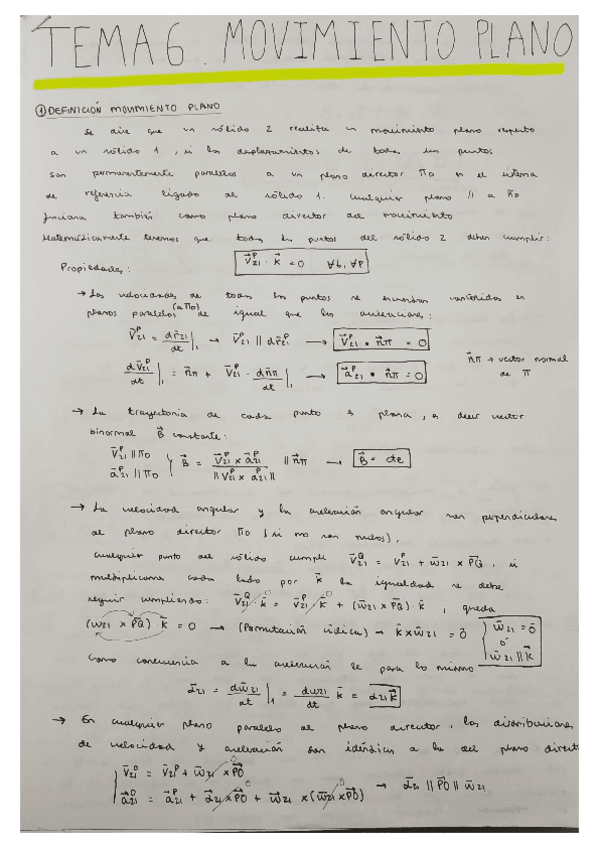 TEMA 6. MOVIMIENTO PLANO
① DEFINICIÓN MOVIMIENTO PLANO
Se dice que un sólido 2 realiza un movimiento plano respecto
a un sólido 1, si los desplazamientos de todos sus puntos
son permanentemente paralelos a un plano director Π₀ en el sistema
de referencia ligado al sólido 1. Cualquier plano // a Π₀
funciona también como plano director del movimiento
Matemáticamente tenemos que todos los puntos del sólido 2 deben cumplir:
Propiedades: V̄₂₁ᴾ · k̄ = 0 ∀t, ∀P
→ Las velocidades de todos los puntos se encuentran contenidas en
planos paralelos (a Π₀) de igual que las aceleraciones:
V̄₂₁ᴾ = dr̄₂₁/dt |₁ → V̄₂₁ᴾ || dr̄₂₁ᴾ → V̄₂₁ᴾ • n̄π = 0
dV̄₂₁ᴾ/dt |₁ = n̄π + V̄₂₁ᴾ · dn̄π/dt |₁ → ā₂₁ᴾ • n̄π = 0
n̄π → vector normal de π
→ La trayectoria de cada punto es plana, es decir vector
binormal B̄ constante:
V̄₂₁ᴾ || Π₀
ā₂₁ᴾ || Π₀ } B̄ = V̄₂₁ᴾ × ā₂₁ᴾ / ||V̄₂₁ᴾ × ā₂₁ᴾ|| || n̄π → B̄ = cte
→ La velocidad angular y la aceleración angular son perpendiculares
al plano director Π₀ (si no son nulos).
Cualquier punto del sólido cumple V̄₂₁Q = V̄₂₁ᴾ + w̄₂₁ × P̄Q̄, si
multiplicamos cada lado por k̄ la igualdad se debe
seguir cumpliendo: V̄₂₁Q · k̄ = V̄₂₁ᴾ · k̄ + (w̄₂₁ × P̄Q̄) · k̄, queda
(w̄₂₁ × P̄Q̄) k̄ = 0 → (Permutación cíclica) → k̄ × w̄₂₁ = 0̄ { w̄₂₁ = 0̄ ó w̄₂₁ || k̄
Como consecuencia a la aceleración le pasa lo mismo
ᾱ₂₁ = dw̄₂₁/dt |₁ = dw₂₁/dt k̄ = α₂₁ k̄
→ En cualquier plano paralelo al plano director, las distribuciones
de velocidad y aceleración son idénticas a la del plano direct
{ V̄₂₁⁰ = V̄₂₁ᴾ + w̄₂₁ × P̄Ō
ā₂₁⁰ = ā₂₁ᴾ + ᾱ₂₁ × P̄Ō + w̄₂₁ × (w̄₂₁ × P̄Ō) → ᾱ₂₁ || P̄Ō || w̄₂₁